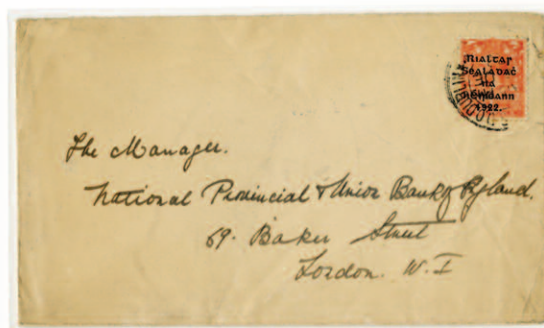 Rialtas
Sealadaċ
na
hÉireann
1922.
The Manager.
National Provincial & Union Bank of England.
69. Baker Street
London. W. I